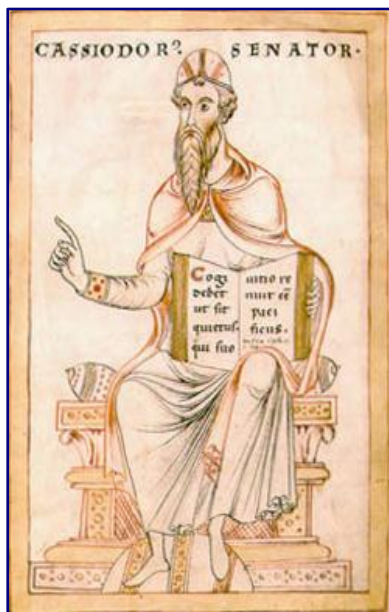 CASSIODORꝰ. SENATOR·
Cogi
debet
ut sit
quietus·
qui suo
uitio re
nuit eē
paci
ficus·